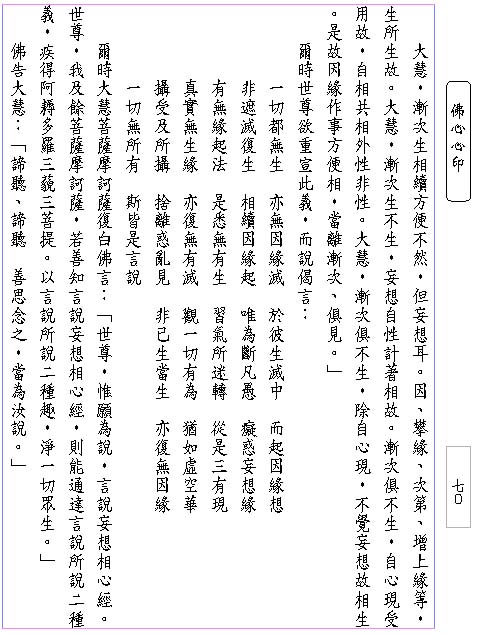 佛心心印
七〇
大慧，漸次生相續方便不然，但妄想耳。因、攀緣、次第、增上緣等，
生所生故。大慧，漸次生不生，妄想自性計著相故。漸次俱不生，自心現受
用故，自相共相外性非性。大慧，漸次俱不生，除自心現，不覺妄想故相生
。是故因緣作事方便相，當離漸次、俱見。」
爾時世尊欲重宣此義，而說偈言：
一切都無生　亦無因緣滅　於彼生滅中　而起因緣想
非遮滅復生　相續因緣起　唯為斷凡愚　癡惑妄想緣
有無緣起法　是悉無有生　習氣所迷轉　從是三有現
真實無生緣　亦復無有滅　觀一切有為　猶如虛空華
攝受及所攝　捨離惑亂見　非已生當生　亦復無因緣
一切無所有　斯皆是言說
爾時大慧菩薩摩訶薩復白佛言：「世尊，惟願為說，言說妄想相心經。
世尊，我及餘菩薩摩訶薩，若善知言說妄想相心經，則能通達言說所說二種
義，疾得阿耨多羅三藐三菩提。以言說所說二種趣，淨一切眾生。」
佛告大慧：「諦聽、諦聽　善思念之，當為汝說。」